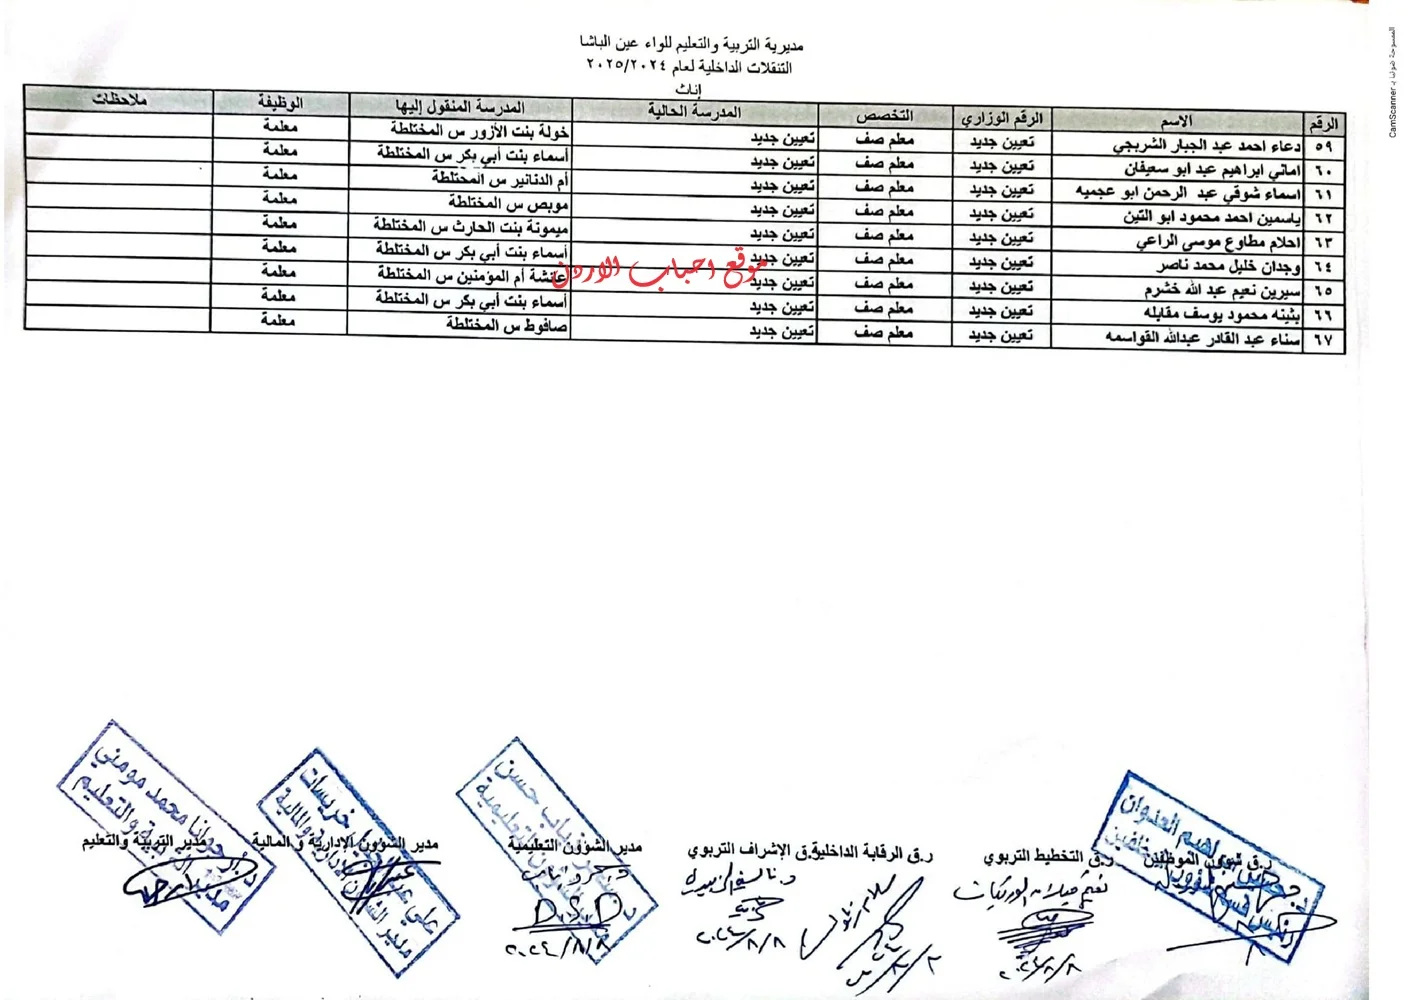 مديرية التربية والتعليم للواء عين الباشا
التنقلات الداخلية لعام ٢٠٢٥/٢٠٢٤
إناث
الرقم الاسم الرقم الوزاري التخصص المدرسة الحالية المدرسة المنقول إليها الوظيفة ملاحظات
٥٩ دعاء احمد عبد الجبار الشربجي تعيين جديد معلم صف تعيين جديد خولة بنت الأزور س المختلطة معلمة
٦٠ اماني ابراهيم عبد ابو سعيفان تعيين جديد معلم صف تعيين جديد أسماء بنت أبي بكر س المختلطة معلمة
٦١ اسماء شوقي عبد الرحمن ابو عجميه تعيين جديد معلم صف تعيين جديد أم الدنانير س المختلطة معلمة
٦٢ ياسمين احمد محمود ابو التين تعيين جديد معلم صف تعيين جديد موبص س المختلطة معلمة
٦٣ احلام مطاوع موسى الراعي تعيين جديد معلم صف تعيين جديد ميمونة بنت الحارث س المختلطة معلمة
٦٤ وجدان خليل محمد ناصر تعيين جديد معلم صف تعيين جديد أسماء بنت أبي بكر س المختلطة معلمة
٦٥ سيرين نعيم عبد الله خشرم تعيين جديد معلم صف تعيين جديد عائشة أم المؤمنين س المختلطة معلمة
٦٦ بثينه محمود يوسف مقابله تعيين جديد معلم صف تعيين جديد أسماء بنت أبي بكر س المختلطة معلمة
٦٧ سناء عبد القادر عبدالله القواسمه تعيين جديد معلم صف تعيين جديد صافوط س المختلطة معلمة
موقع احباب الاردن
ر.ق شؤون الموظفين
ر.ق التخطيط التربوي
ر.ق الرقابة الداخلية
ر.ق الإشراف التربوي
مدير الشؤون التعليمية
مدير الشؤون الإدارية و المالية
مدير التربية والتعليم
٢٠٢٤/٨/٨
٢٠٢٤/٨/٨
الممسوحة ضوئيا بـ CamScanner